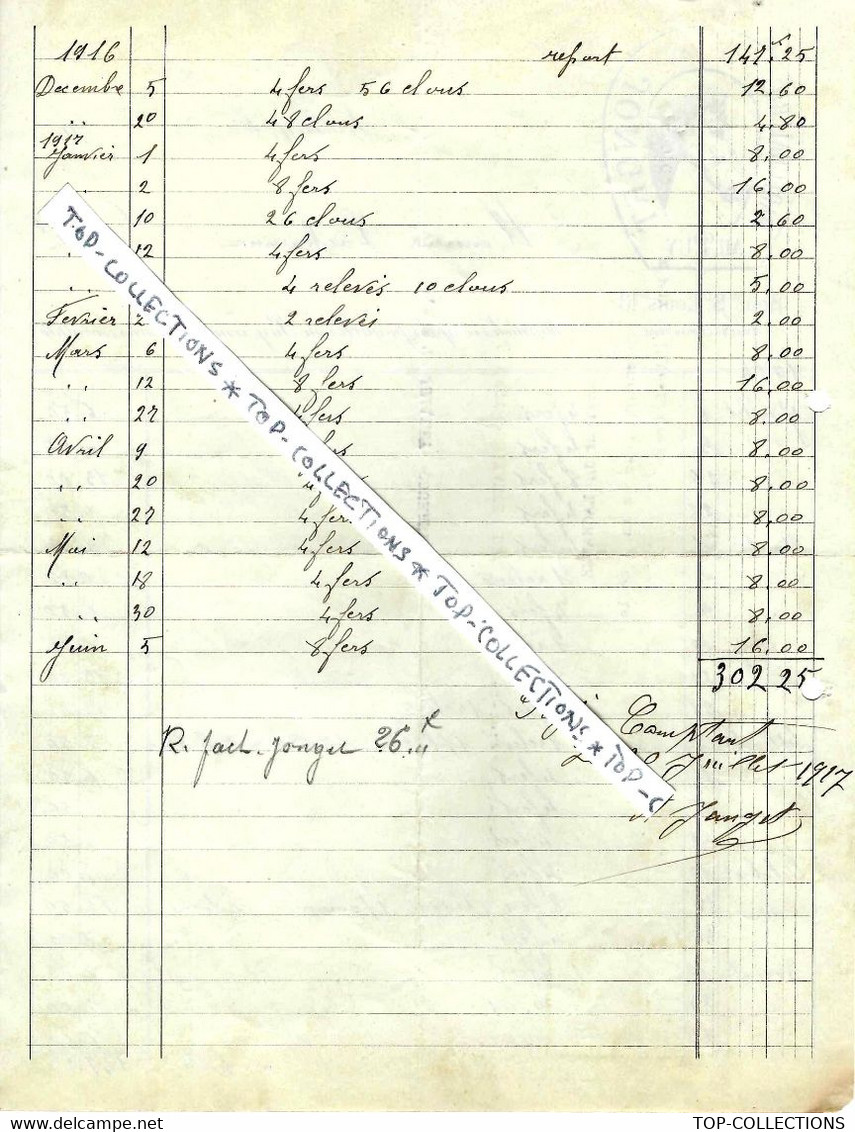 1916 report 141.25
Decembre 5 4 fers 56 clous 12.60
.. 20 48 clous 4.80
1917
Janvier 1 4 fers 8.00
.. 2 8 fers 16.00
10 26 clous 2.60
.. 12 4 fers 8.00
.. 4 relevés 10 clous 5.00
Fevrier 2 2 relevés 2.00
Mars 6 4 fers 8.00
.. 12 8 fers 16.00
.. 27 4 fers 8.00
Avril 9 fers 8.00
.. 20 4 8.00
.. 27 4 fers 8.00
Mai 12 4 fers 8.00
.. 18 4 fers 8.00
.. 30 4 fers 8.00
Juin 5 8 fers 16.00
302 25
Comptant
Juillet 1917
R. fact. Jonget 26
Jonget
TOP-COLLECTIONS * TOP-COLLECTIONS * TOP-COLLECTIONS * TOP-C
TOP-COLLECTIONS